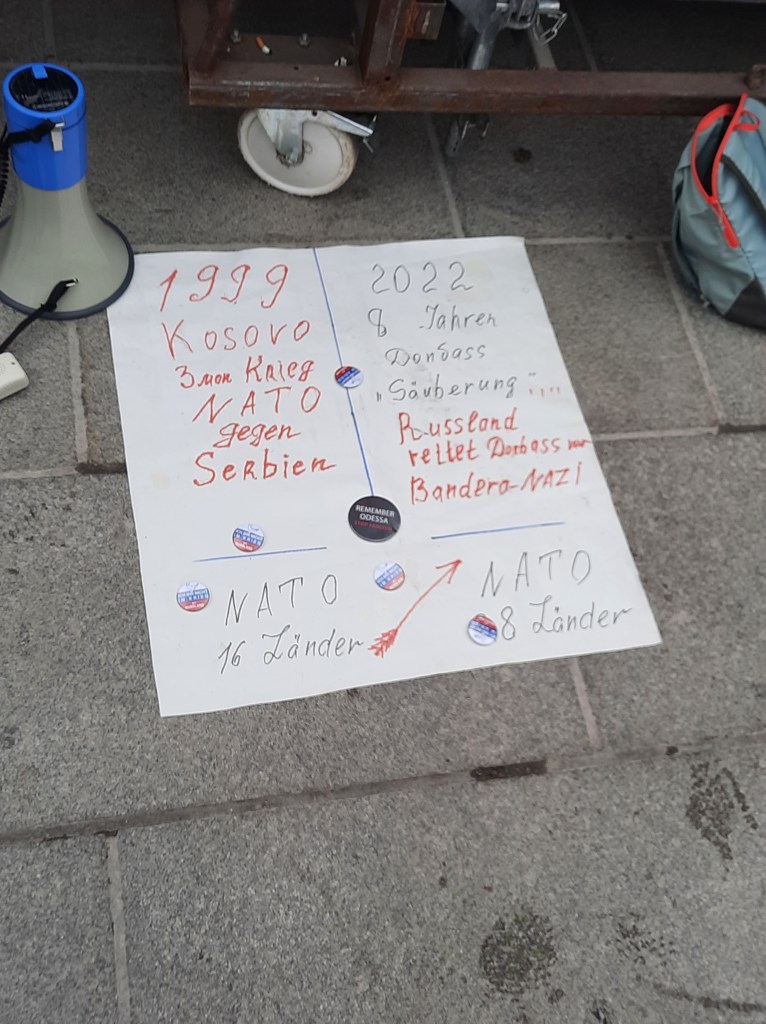 1999
Kosovo
3 mon Krieg
NATO
gegen
Serbien
2022
8 Jahren
Donbass
"Säuberung"...
Russland
rettet Donbass vor
Bandera-NAZI
REMEMBER
ODESSA
NATO
16 Länder
NATO
8 Länder